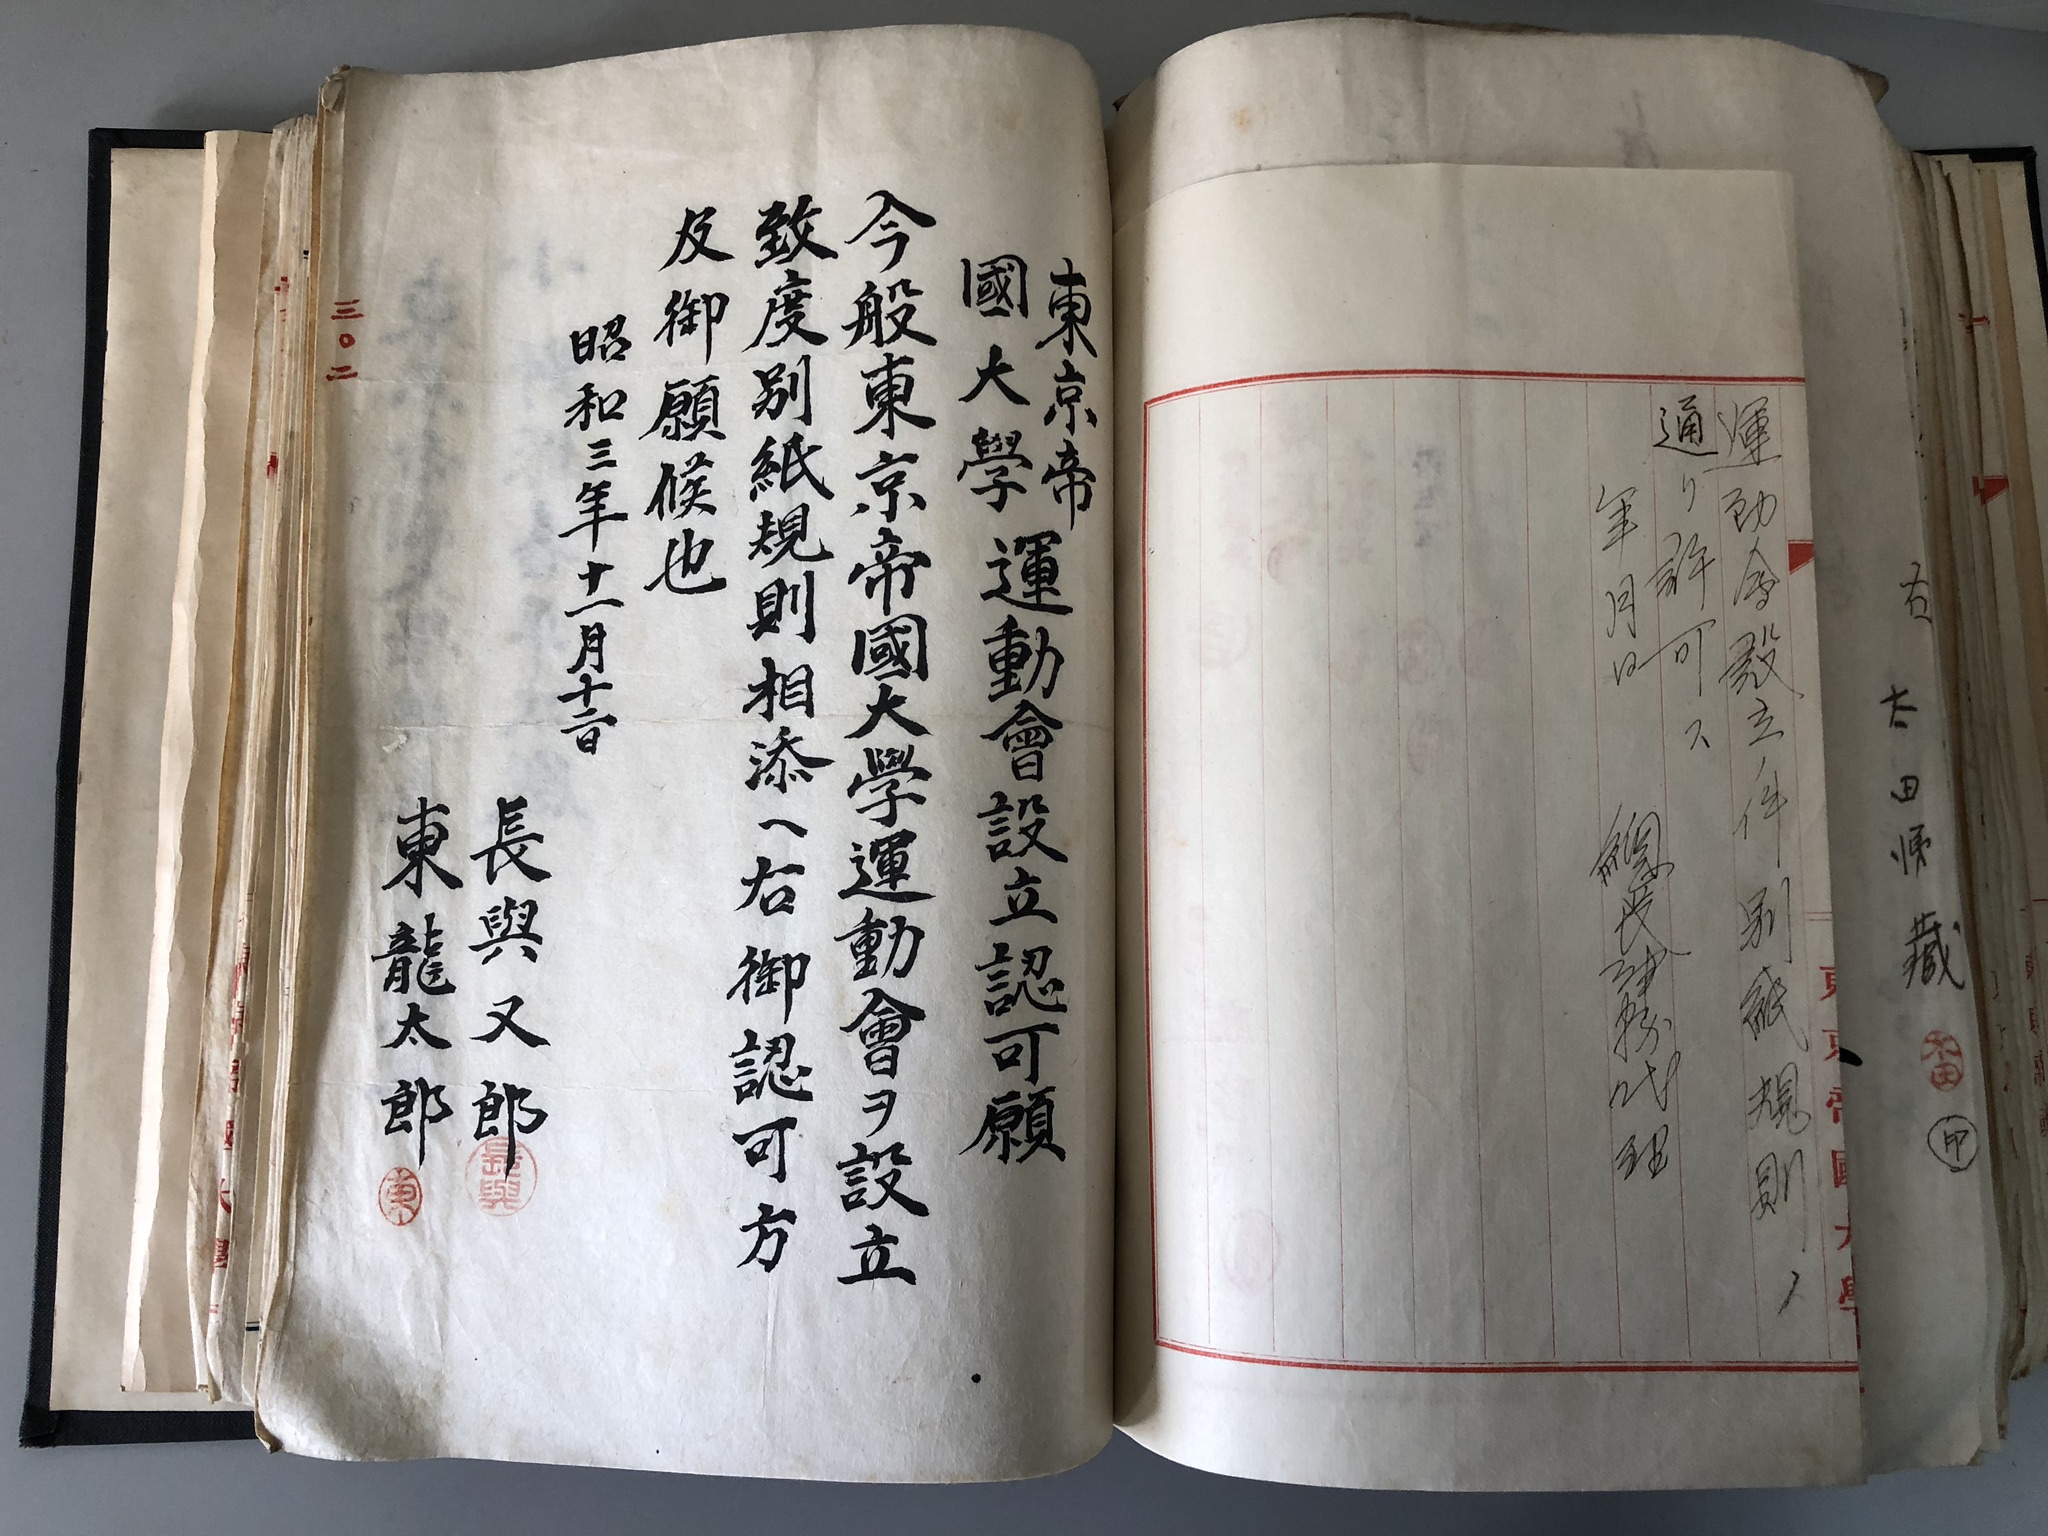 右
太田勝藏
太田
甲
運動会設立ノ件別紙規則ノ
通リ許可ス
年月日
総長事務代理
東京帝國大學
東京帝
國大學
運動會設立認可願
今般東京帝國大學運動會ヲ設立
致度別紙規則相添ヘ右御認可方
及御願候也
昭和三年十一月十二日
長與又郎
長與
東龍太郎
東
三〇二